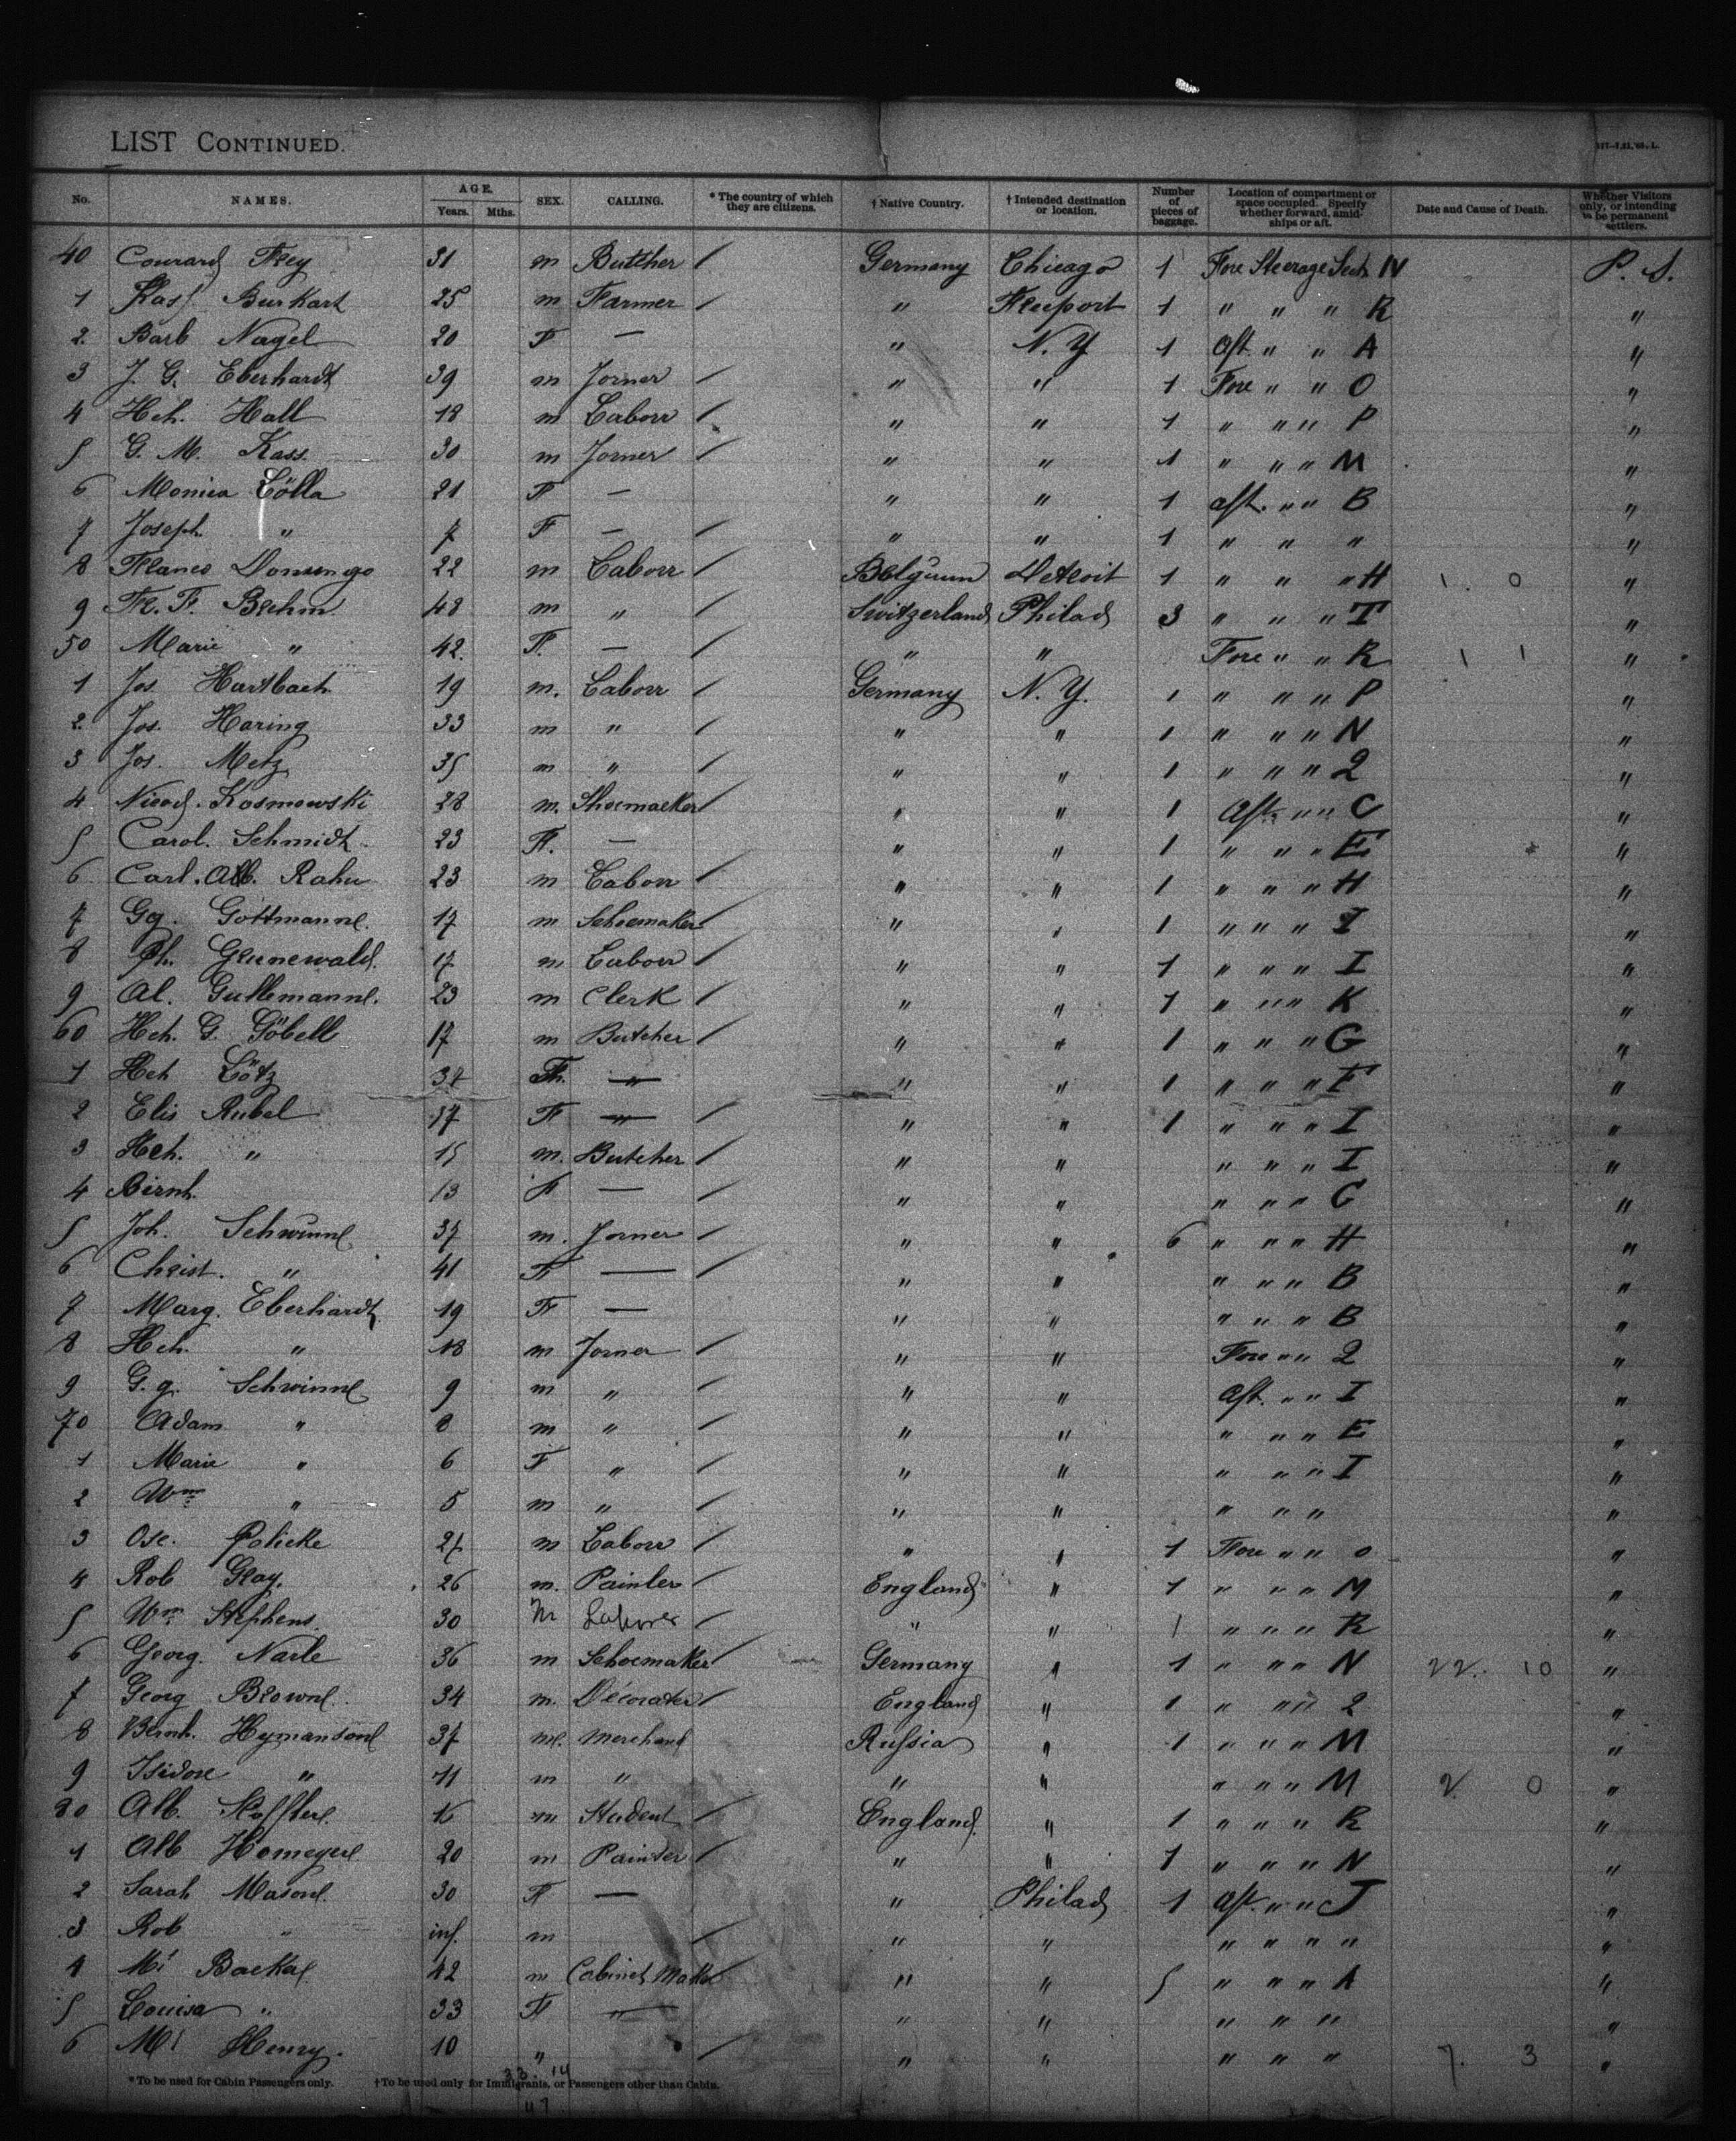 LIST CONTINUED.
No. NAMES. AGE. Years. Mths. SEX. CALLING. * The country of which they are citizens. † Native Country. † Intended destination or location. Number of pieces of baggage. Location of compartment or space occupied. Specify whether forward, amidships or aft. Date and Cause of Death. Whether Visitors only, or intending to be permanent settlers.
40 Conrad Frey 31 m Butcher / Germany Chicago 1 Fore Steerage Sect. N P. S.
1 Burkart 25 m Farmer / " Freeport 1 " " " R "
2 Barb Nagel 20 F — " N. Y 1 Aft " " A "
3 J. G. Eberhardt 39 m Jorner / " " 1 Fore " " O "
4 Hch. Hall 18 m Laborr / " " 1 " " " P "
5 G. M. Kass. 30 m Jorner / " " 1 " " " M "
6 Monica Lölla 21 F — " " 1 aft. " " B "
7 Joseph " 7 F — / " " 1 " " " "
8 Franco Domengo 22 m Laborr / Belgium Detroit 1 " " " H 1. 0 "
9 Fr. F. Brehm 48 m " / Switzerland Philad 3 " " " T "
50 Marie " 42. F. — / " " Fore " " R 1 1 "
1 Jos. Hartbach 19 m. Laborr / Germany N. Y. 1 " " " P "
2 Jos. Haring 33 m " / " " 1 " " " N "
3 Jos. Metz 35 m " / " " 1 " " " 2 "
4 Nicod. Kosmowski 28 m. Shoemacker / " " 1 Aft. " " C "
5 Carol. Schmidt 23 F. — " " 1 " " " E "
6 Carl. Alb. Rahn 23 m Laborr / " " 1 " " " H "
7 Gg. Gottmann 17 m Schoemaker / " " 1 " " " I "
8 Ph. Grunewald. 17 m Laborr / " " 1 " " " I "
9 Al. Gullemann. 23 m Clerk / " " 1 " " " K "
60 Hch. G. Göbell 17 m Butcher / " " 1 " " " G "
1 Hch Lötz 37 — " " 1 " " " F "
2 Elis Rubel 17 F — / " " 1 " " " I "
3 Hch. " 15 m. Butcher / " " " " " I "
4 Bernh. 13 F — / " " " " " C "
5 Joh. Schwinn 37 m. Jorner / " " 6 " " " H "
6 Christ. " 41 F — / " " " " " B "
7 Marg. Eberhardt 19 F — " " " " " B "
8 Hch. " 18 m Jorner / " " Fore " " 2 "
9 G. g. Schwinn 9 m " / " " Aft. " " I "
70 Adam " 8 m " / " " " " " E "
1 Marie " 6 F " / " " " " " I "
2 Wm " 5 m " / " " " " " "
3 Osc. Policke 27 m Laborr / " " 1 Fore " " o "
4 Rob Gray. 26 m. Painter / England " 1 " " " M "
5 Wm Stephens. 30 M Laborer / " " 1 " " " R "
6 Georg. Narle 36 m Schoemaker / Germany " 1 " " " N 22. 10 "
7 Georg Brown 34 m. Decorater / England " 1 " " " 2 "
8 Bernh. Hymanson 37 m. Merchant Russia " 1 " " " M "
9 Isidore " 11 m " " " " " " M 2 0 "
80 Alb. 16 m Student / England " 1 " " " R "
1 Alb Homeyer 20 m Painter / " " 1 " " " N "
2 Sarah Mason 30 F — " Philad 1 Aft. " " J "
3 Rob " inf. m / " " " " " " "
4 Mr Backal 42 m Cabinet Maker / " " 5 " " " A "
5 Louisa " 33 F — " " " " " "
6 Mr Henry. 10 " / " " " " " 7. 3 "
33. 14
* To be used for Cabin Passengers only. † To be used only for Immigrants, or Passengers other than Cabin.
47